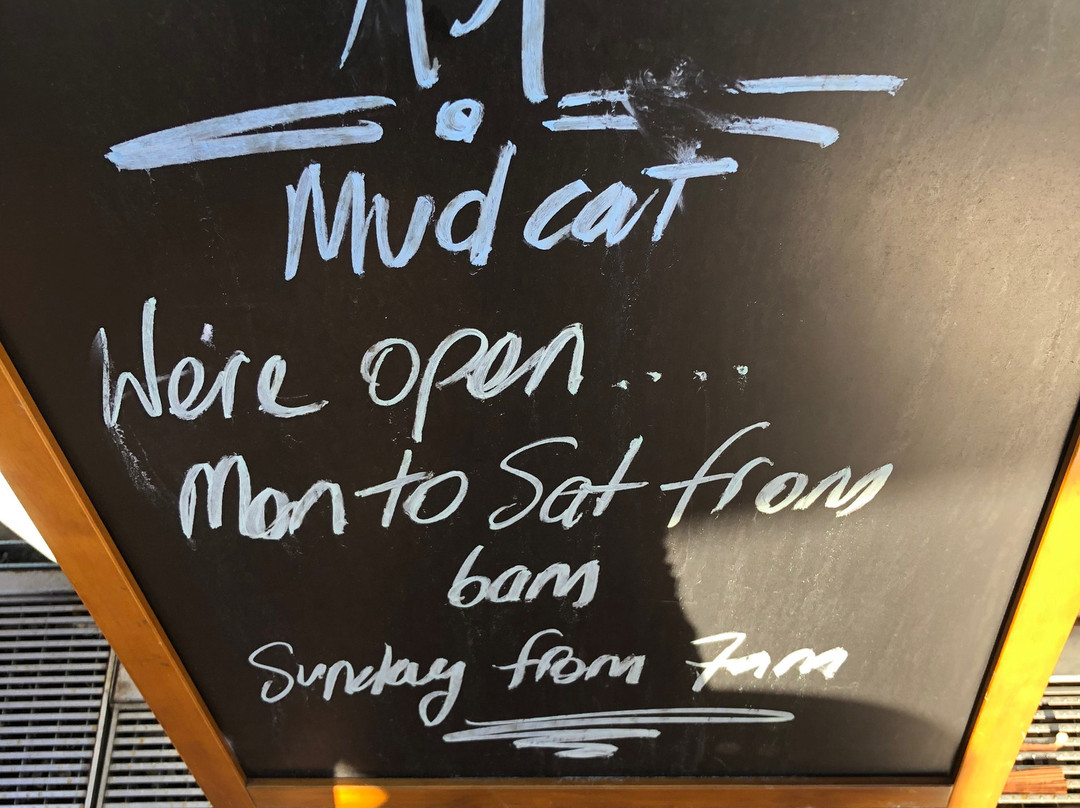 Mud cat
We're open....
Mon to Sat from
6am
Sunday from 7am